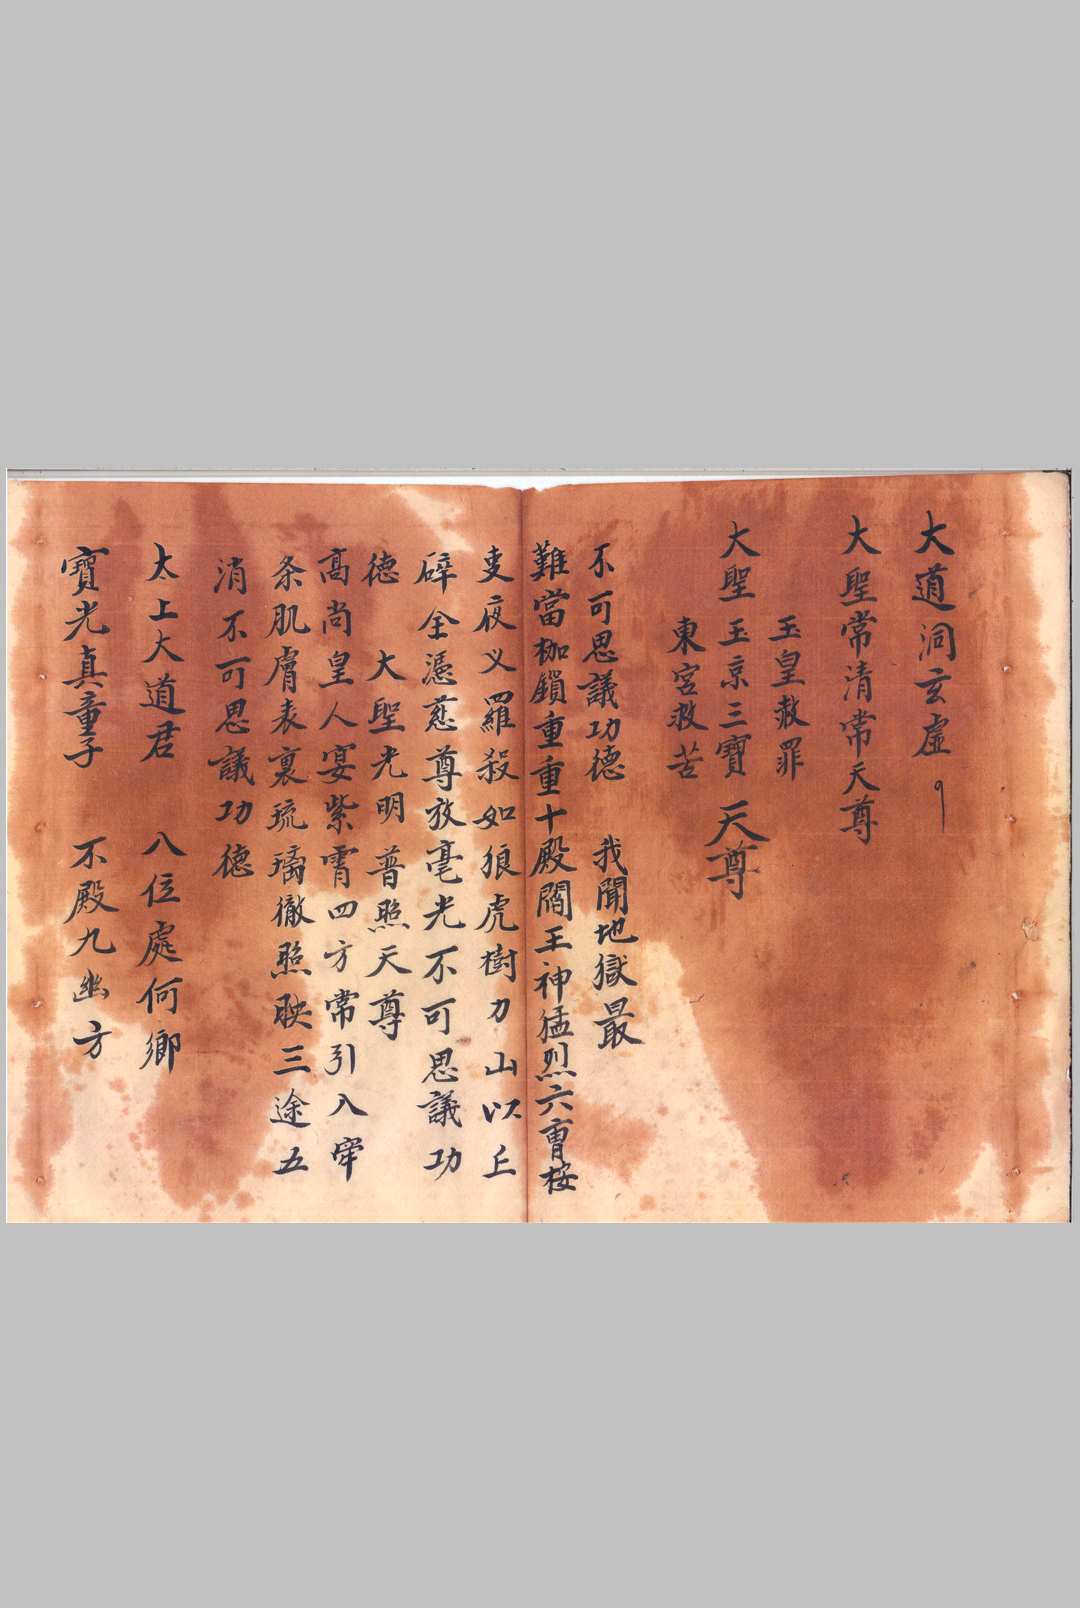 大道洞玄虛
大聖常清常天尊
玉皇赦罪
大聖玉京三寶天尊
東宮救苦
不可思議功德 我聞地獄最
難當枷鎖重重十殿閻王神猛烈六曹桉
吏夜义羅殺如狼虎樹刀山以丘
碎全憑慈尊放毫光不可思議功
德 大聖光明普照天尊
高尚皇人宴紫霄四方常引入牢
条肌膚表裏琉璃徹照映三途五
消不可思議功德
太上大道君 八位處何鄉
寶光真童子 不殿九幽方